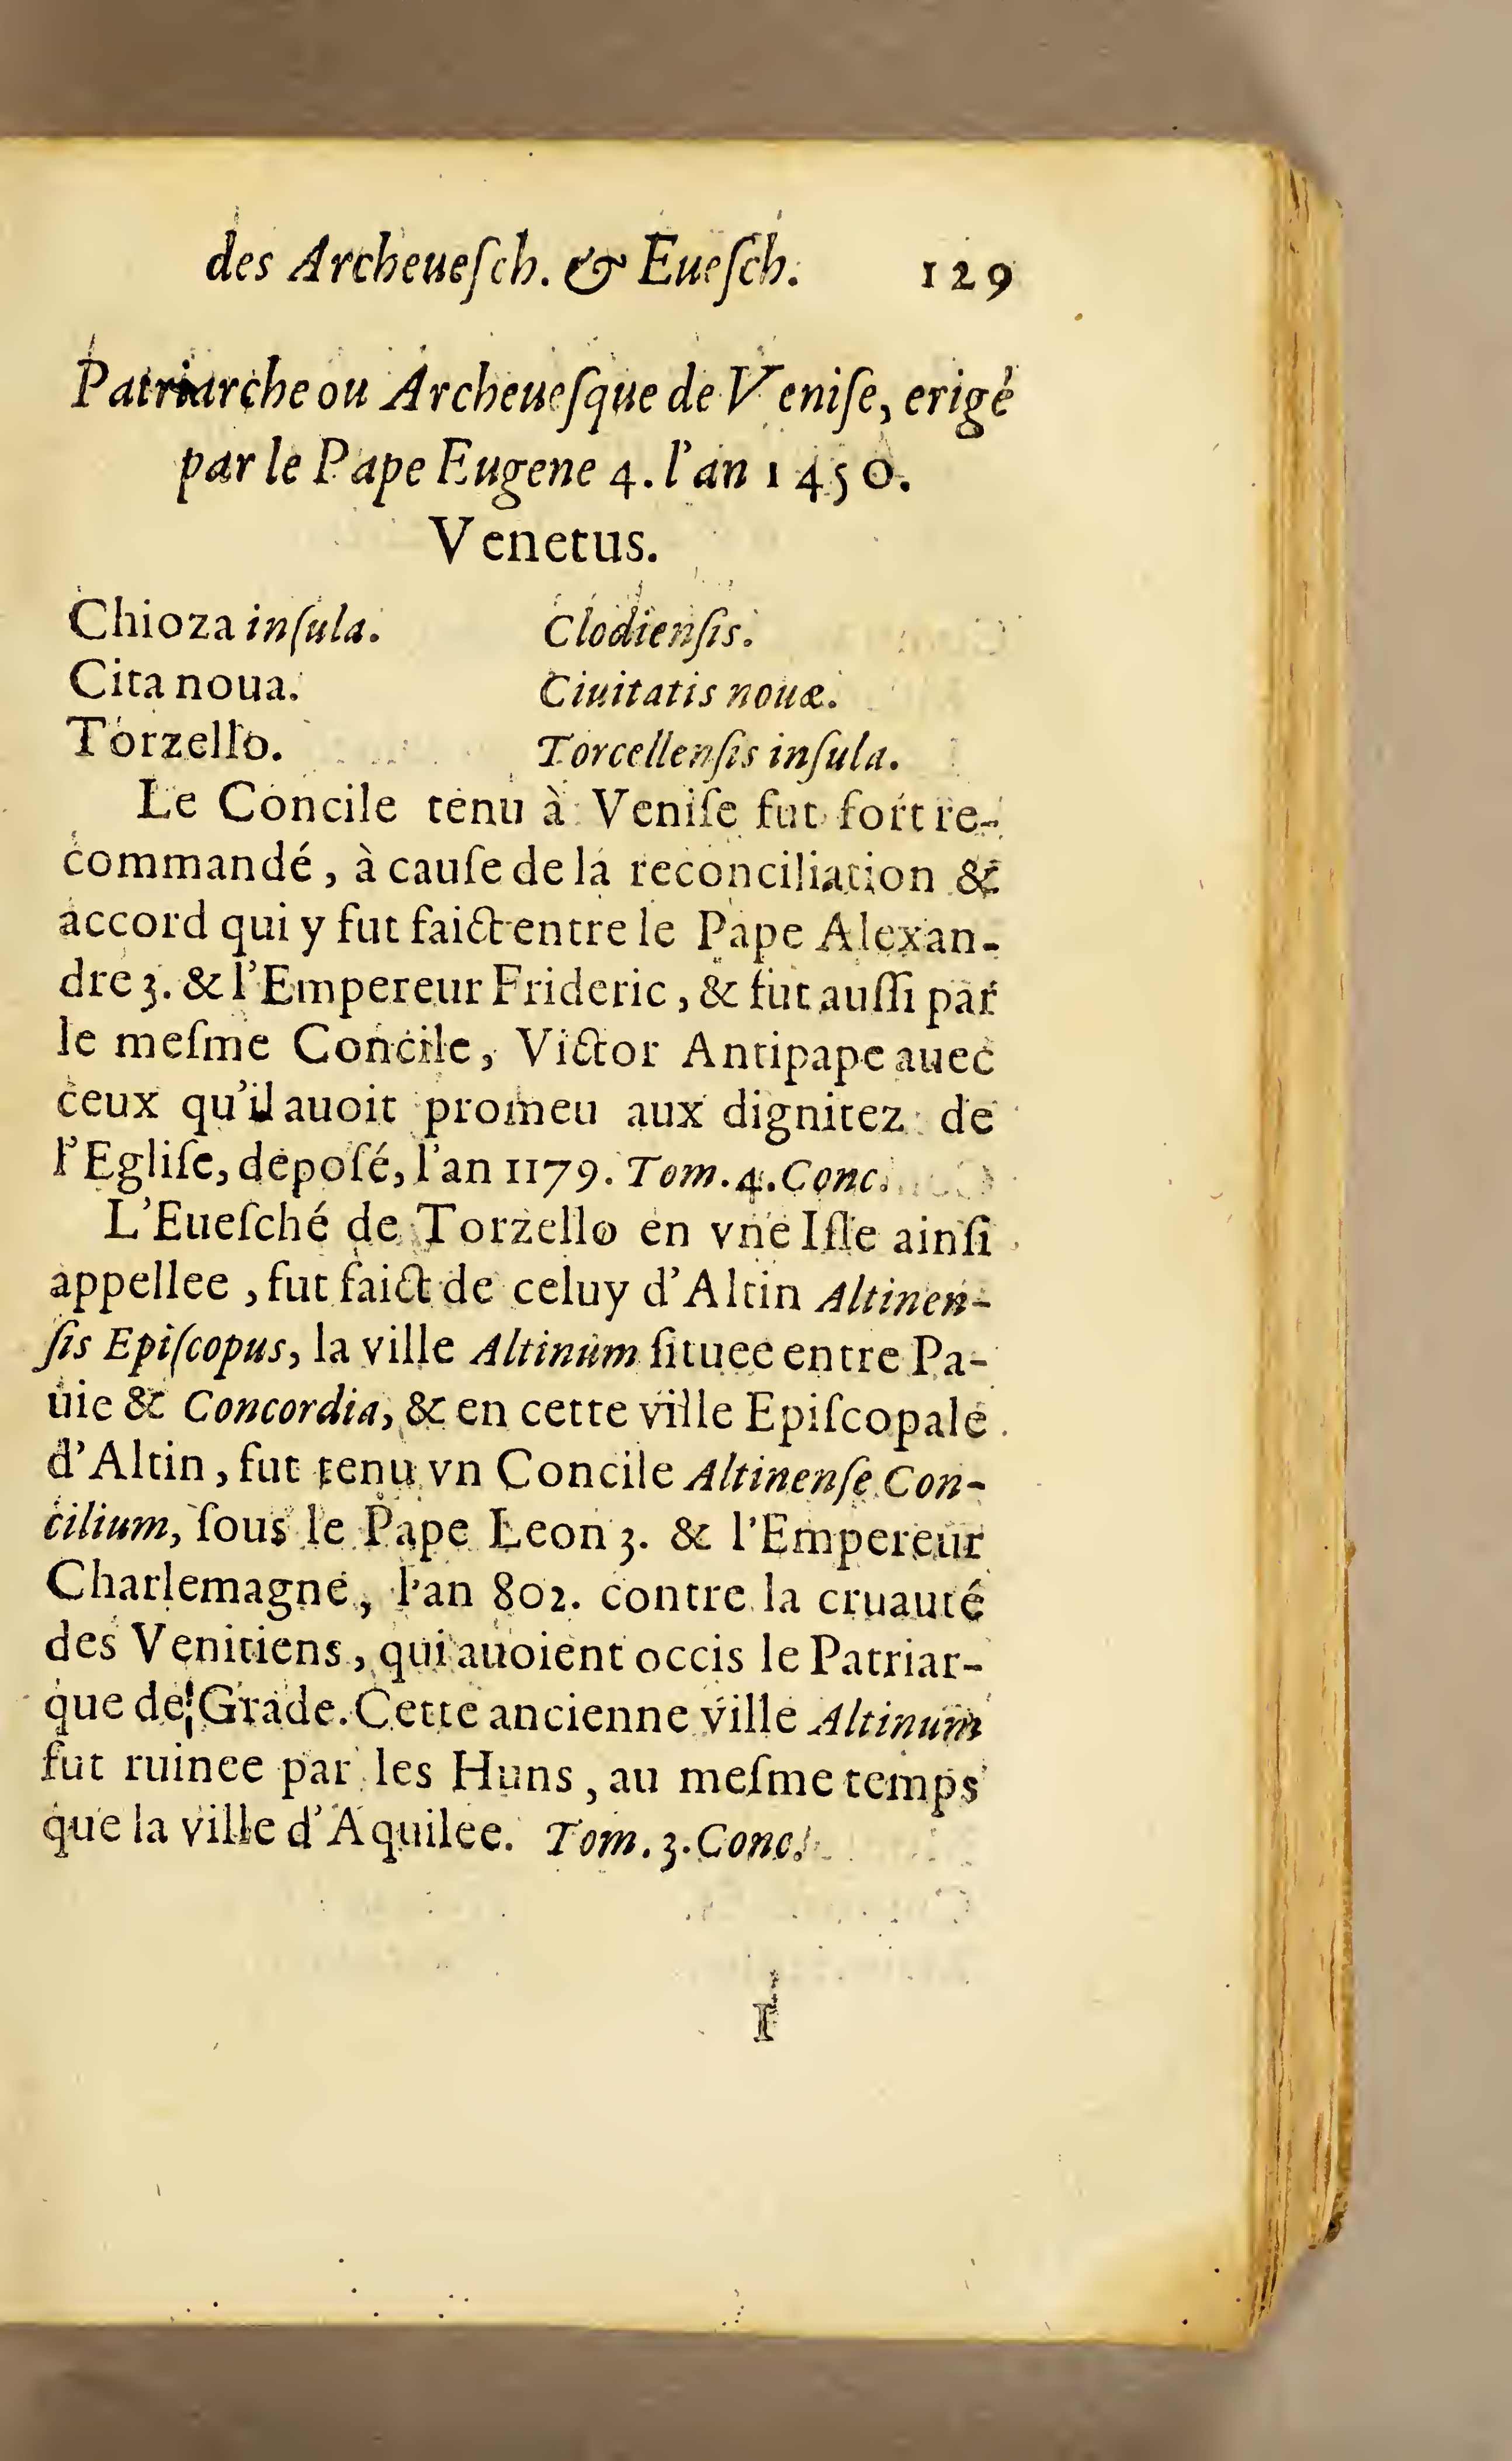 des Archeueſch. & Eueſch. 129
Patriarche ou Archeueſque de Veniſe, erigé
par le Pape Eugene 4. l'an 1450.
Venetus.
Chioza inſula. Clodienſis.
Cita noua. Ciuitatis nouæ.
Torzello. Torcellenſis inſula.
Le Concile tenu à Veniſe fut fort re-
commandé, à cauſe de la reconciliation &
accord qui y fut faict entre le Pape Alexan-
dre 3. & l'Empereur Frideric, & fut auſſi par
le meſme Concile, Victor Antipape auec
ceux qu'il auoit promeu aux dignitez de
l'Egliſe, depoſé, l'an 1179. Tom. 4. Conc.
L'Eueſché de Torzello en vne Iſle ainſi
appellee, fut faict de celuy d'Altin Altinen-
ſis Epiſcopus, la ville Altinum ſituee entre Pa-
uie & Concordia, & en cette ville Epiſcopale
d'Altin, fut tenu vn Concile Altinenſe Con-
cilium, ſous le Pape Leon 3. & l'Empereur
Charlemagne, l'an 802. contre la cruauté
des Venitiens, qui auoient occis le Patriar-
que de Grade. Cette ancienne ville Altinum
fut ruinee par les Huns, au meſme temps
que la ville d'Aquilee. Tom. 3. Conc.
I